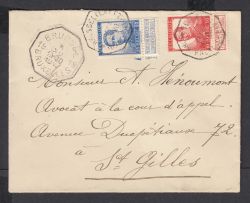 Monsieur A. Hénoumont
Avocat à la cour d'appel
Avenue Ducpétiaux 72
à
St Gilles